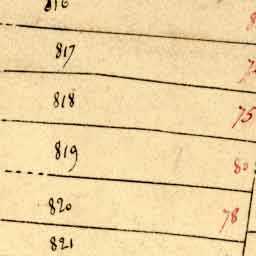 816
817
818 75
819 80
820 78
821